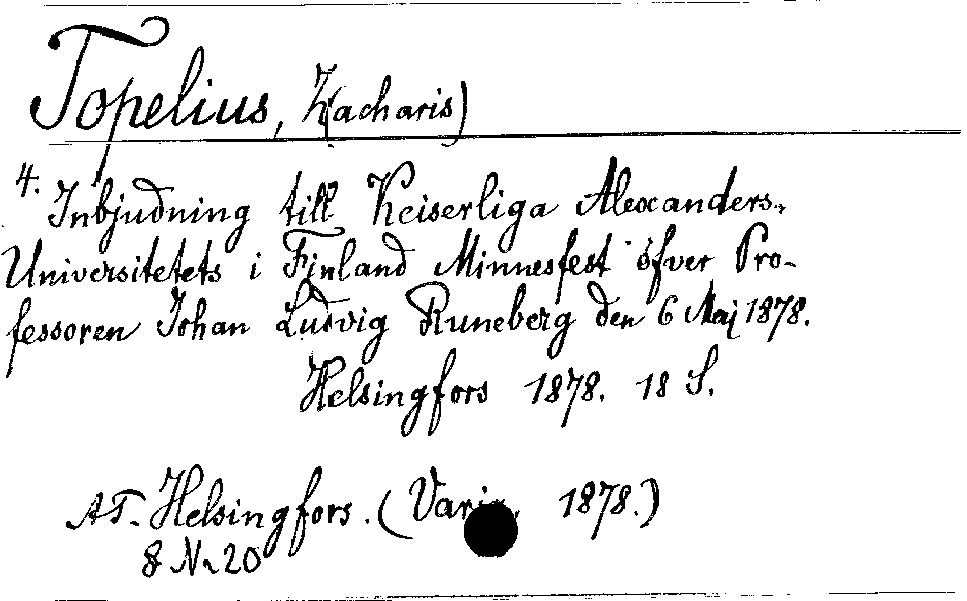 Topelius, Z(acharis)
4. Inbjudning till Keiserliga Alexanders-
Universitetets i Finland Minnesfest öfver Pro-
fessoren Johan Ludvig Runeberg den 6 Maj 1878.
Helsingfors 1878. 18 S.
AT. Helsingfors. (Varia, 1878.)
8 Nr 20